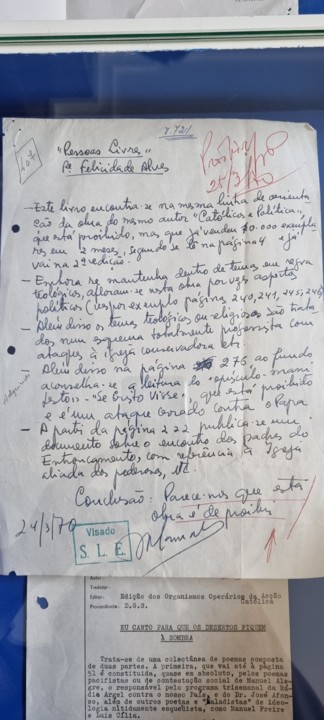 7.721
407
"Pessoas Livres"
Pe Felicidade Alves
25/3/70
— Este livro encontra-se na mesma linha de orienta
ção da obra do mesmo autor "Católicos e Política",
que está proibido, mas que já vendeu 10.000 exempla
res em 2 meses, segundo se lê na página 4 e já
vai na 2ª edição.
— Embora se mantenha dentro de temas em regra
teológicos, afloram-se nesta obra por vezes aspectos
políticos (ver por exemplo página 240, 241, 245, 246)
— Além disso os temas teológicos ou religiosos são trata
dos num esquema totalmente progressista com
ataques à igreja conservadora etc.
— Além disso na página 275 ao fundo
aconselha-se a leitura do "opúsculo-mani
festo" - "Se Cristo Visse", que está proibido
e é um ataque cerrado contra o Papa
— A partir da página 222 publica-se um
documento sobre o encontro dos padres do
Entroncamento, com referência à Igreja
aliada dos poderosos, etc.
Conclusão: Parece-nos que esta
obra é de proibir
24/3/70
Visado
S. L. E.
Autor
Tradutor
Editor: Edição dos Organismos Operários da Acção
Católica
Proveniência: D.G.S.
EU CANTO PARA QUE OS DESERTOS FIQUEM
À SOMBRA
Trata-se de uma colectânea de poemas composta
de duas partes. A primeira, que vai até à página
51 é constituída, quase em absoluto, pelos poemas
pacifistas ou de contestação social de Manuel Ale-
gre, o responsável pelo programa trisemanal da Rá-
dia Argel contra o nosso País, e do Dr. José Afon-
so, além de outros poetas e "baladistas" de ideo-
logia nitidamente esquerdista, como Manuel Freire e
Luís Cília.